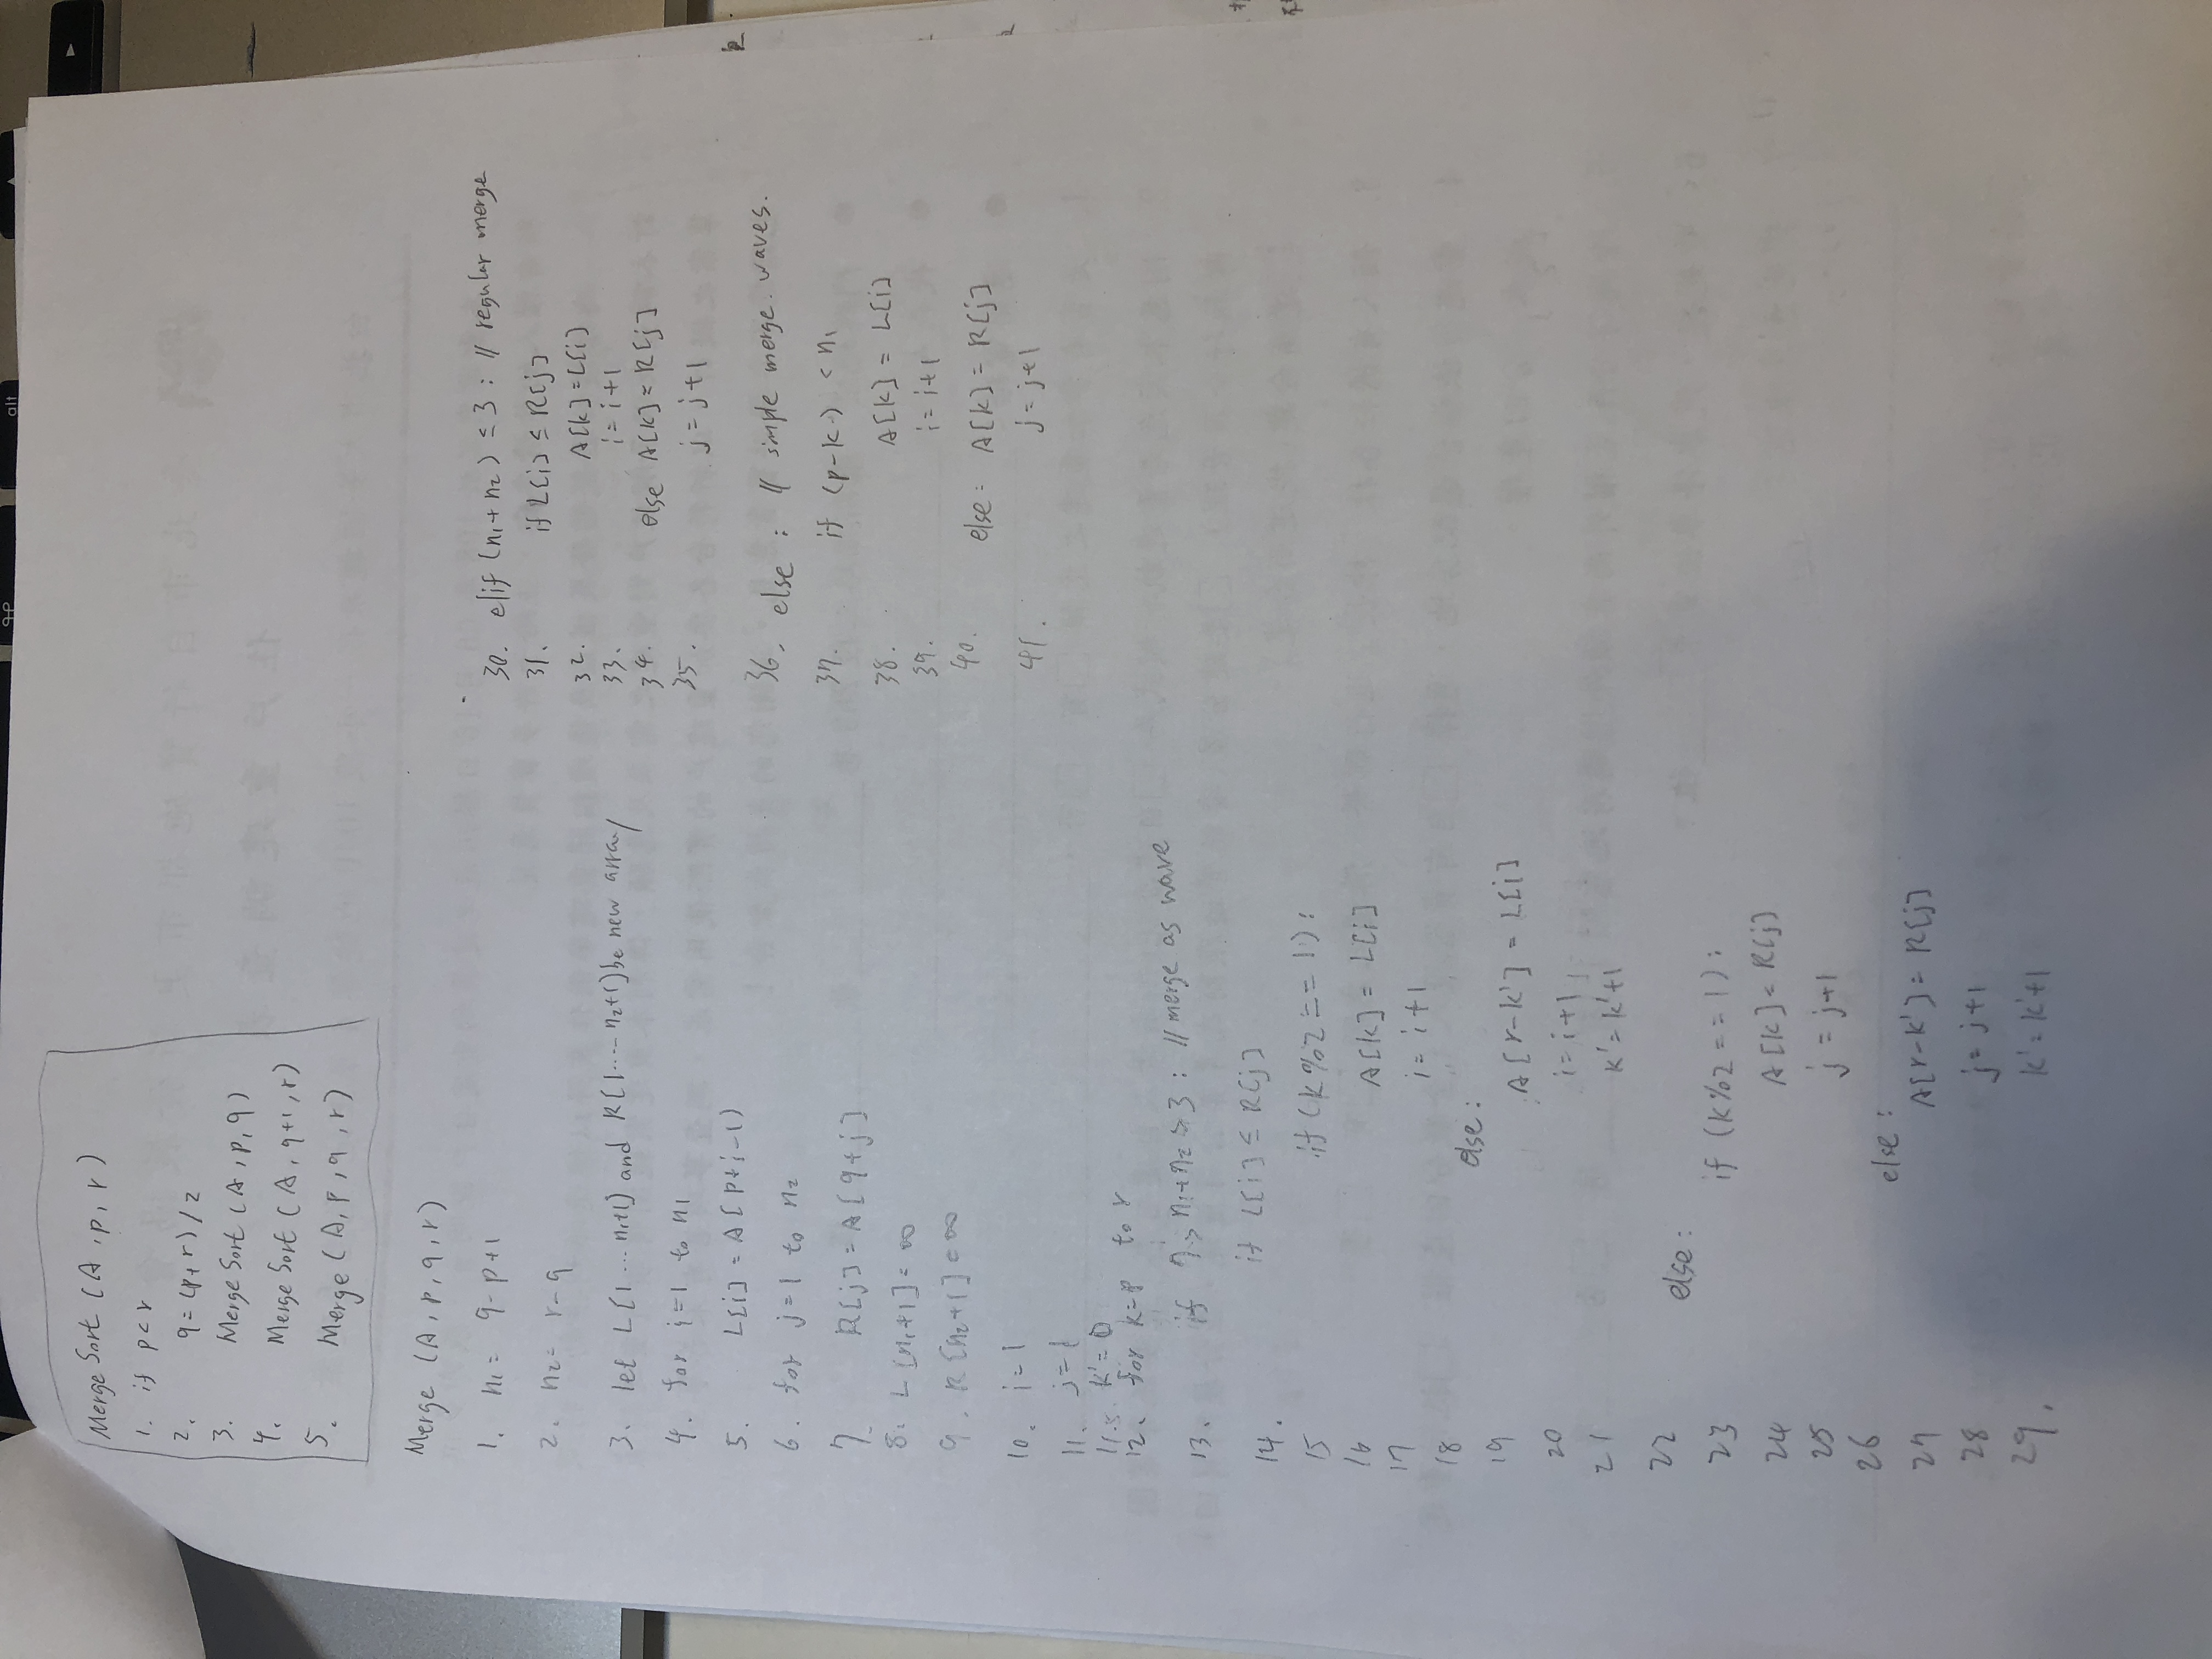 ⌘
alt
MergeSort (A, p, r)
1. if p<r
2. q=(p+r)/2
3. MergeSort (A, p, q)
4. MergeSort (A, q+1, r)
5. Merge (A, p, q, r)
Merge (A, p, q, r)
1. n1= q-p+1
2. n2= r-q
3. let L[1 ... n1+1] and R[1 .... n2+1] be new array
4. for i=1 to n1
5. L[i] = A[p+i-1)
6. for j=1 to n2
7 R[j] = A[q+j]
8. L[n1+1] = ∞
9. R[n2+1] = ∞
10. i=1
11. j=1
11.5. k'=0
12. for k=p to r
13. if n1+n2 > 3 : // merge as wave
14. if L[i] ≤ R[j]
15 if (k%2 == 1):
16 A[k] = L[i]
17 i= i+1
18 else:
19 A[r-k'] = L[i]
20 i= i+1
21 k'= k'+1
22 else:
23 if (k%2 == 1):
24 A[k]= R[j]
25 j = j+1
26 else:
27 A[r-k'] = R[j]
28 j= j+1
29. k'= k'+1
30. elif (n1+n2) ≤ 3 : // regular merge
31. if L[i] ≤ R[j]
32. A[k]=L[i]
33. i= i+1
34. else A[k]= R[j]
35. j= j+1
36. else : // simple merge. waves.
37. if (p-k) < n1
38. A[k] = L[i]
39. i= i+1
40. else: A[k] = R[j]
41. j= j+1